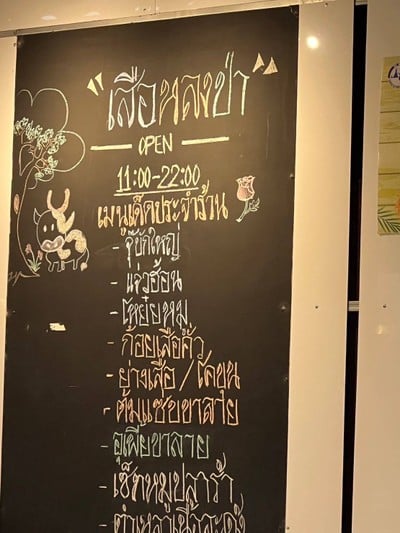 "เสือหลงป่า"
OPEN
11:00-22:00
เมนูเด็ดประจำร้าน
- จุ๊บักใหญ่
- แจ่วฮ้อน
- ไหย่อหม
- ก้อยเสือคั่ว
- ย่างเสือ/โคขุน
- ต้มแซ่บขาลาย
- อุเพี้ยขาลาย
- เซ็ทหมูปลาร้า